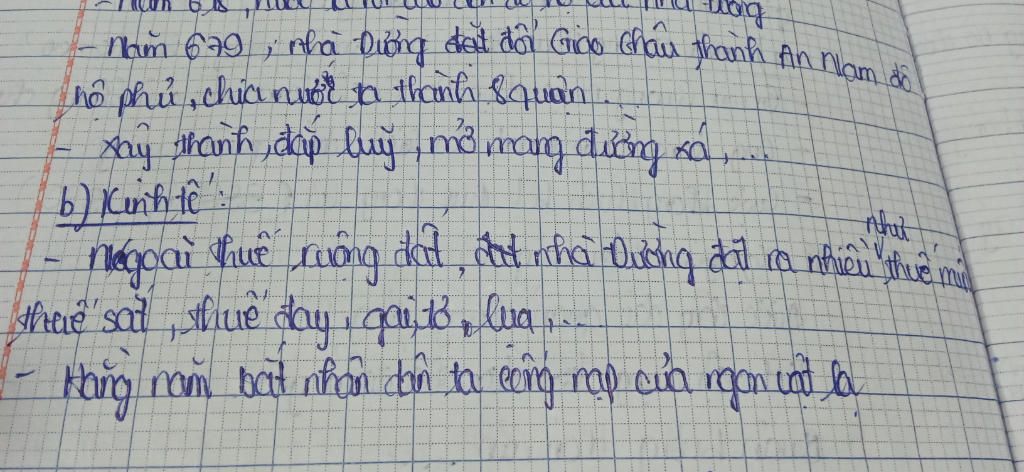 - Năm 679, nhà Đường đổi Giao Châu thành An Nam đô
hộ phủ, chia nước ta thành 8 quận.
- Xây thành, đắp luỹ, mở mang đường xá,...
b) Kinh tế:
- Ngoài thuế ruộng đất, nhà Đường đặt ra nhiều thuế như
thuế sắt, thuế đay, gai, tơ, lụa,...
- Hằng năm bắt nhân dân ta cống nạp của ngon vật lạ